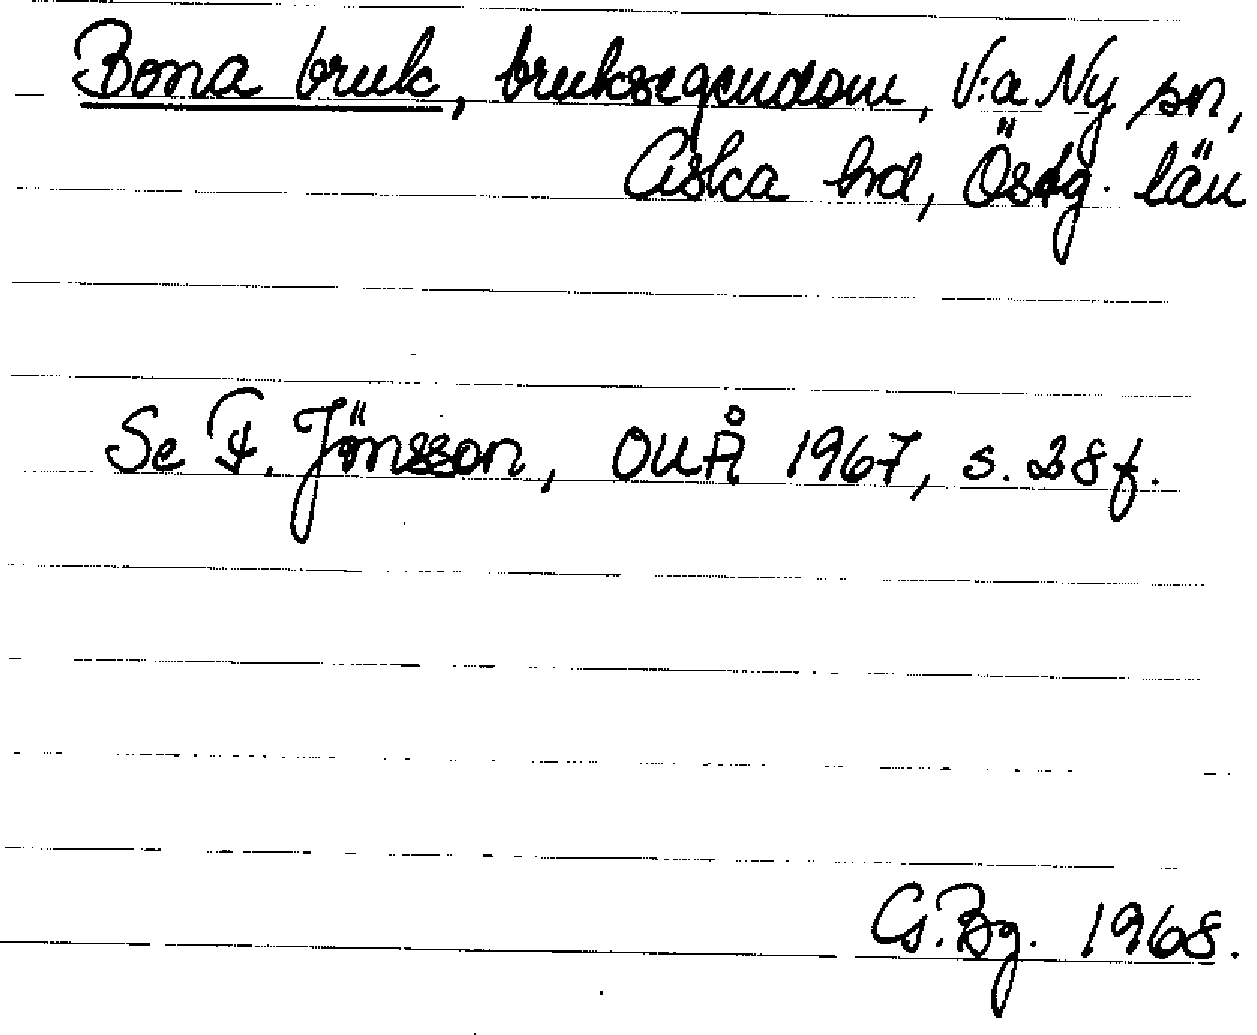 Bona bruk, bruksegendom, V:a Ny sn,
Aska hd, Östg. län
Se F. Jönsson, OUÅ 1967, s. 28 f.
G.Bg. 1968.